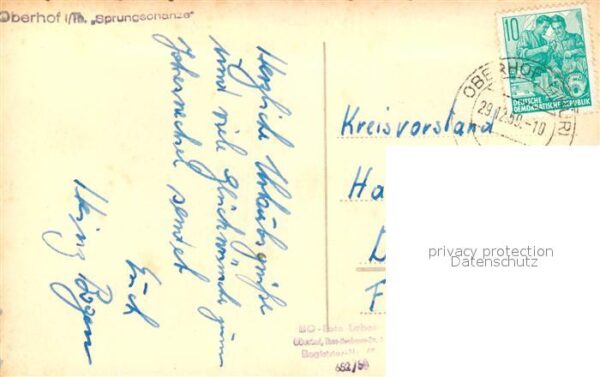 Oberhof i/Th. „Sprungschanze"
Herzliche Urlaubsgrüße
und viel Glückwunsch zum
Jahreswechsel sendet
Euch
Heinz
10
DEUTSCHE
DEMOKRATISCHE REPUBLIK
OBERHOF
29.12.59.-10
Kreisvorstand
Ha
D
F
privacy protection
Datenschutz
BG-Foto
682/59